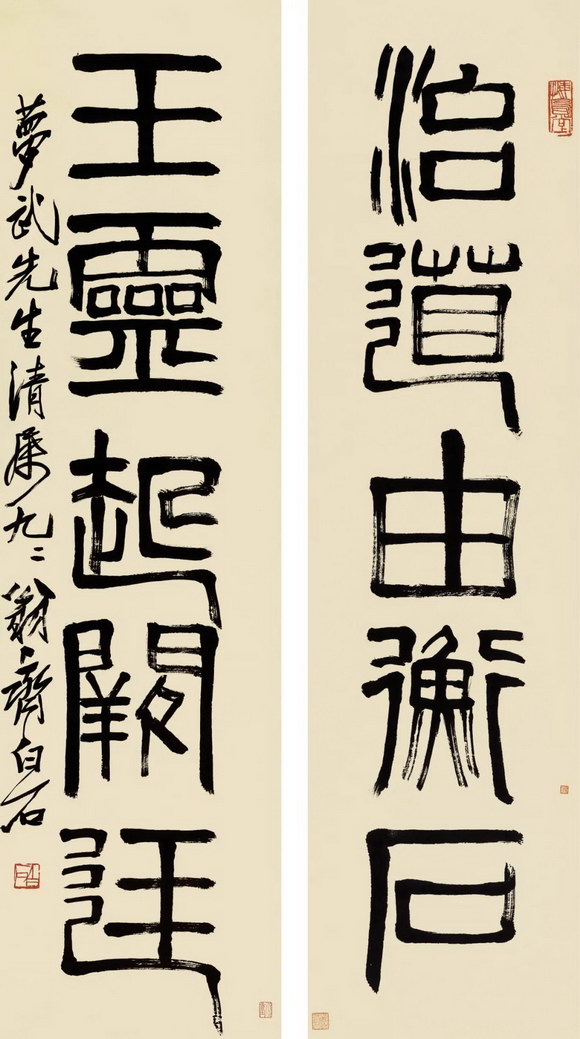 治道由衡石
王靈起闕廷
夢武先生清屬 九二翁齊白石
白石